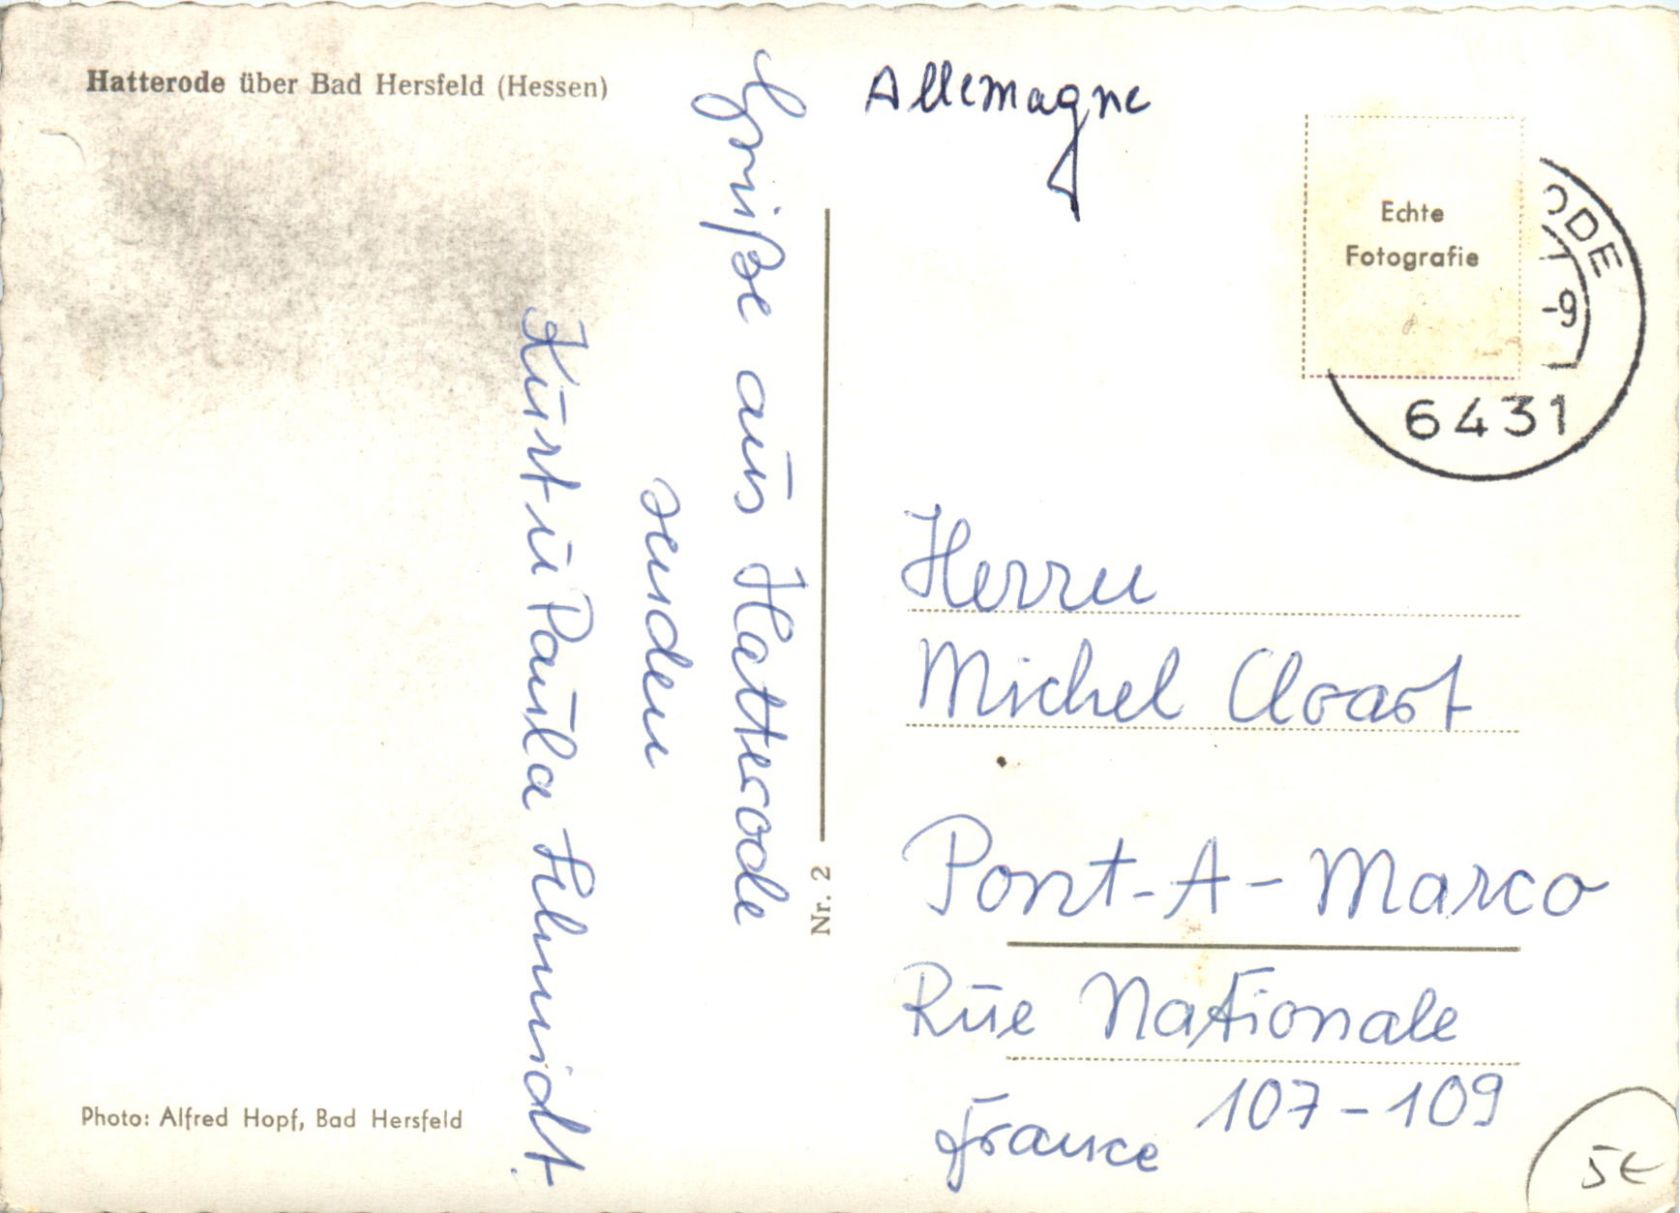 Hatterode über Bad Hersfeld (Hessen)
Grüße aus Hatterode
senden
Kurt u Paula Schmidt.
Photo: Alfred Hopf, Bad Hersfeld
Nr. 2
Allemagne
Echte
Fotografie
ODE
-9
6431
Herrn
Michel
Pont-A-Marco
Rue Nationale
107-109
France
5€